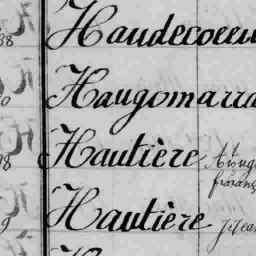 38 Haudecoeu
0 Haugomarra
98 Hautière Aug
9 Hautière